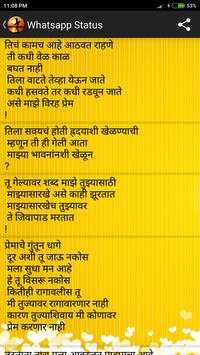 11:08 PM
Whatsapp Status
तिचं कामच आहे आठवत राहणे
ती कधी वेळ काळ
बघत नाही
तिला वाटते तेव्हा येऊन जाते
कधी हसवते तर कधी रडवून जाते
असे माझे विरह प्रेम
!
तिला सवयच होती ह्रदयाशी खेळण्याची
म्हणून ती ही गेली आता
माझ्या भावनांनशी खेळून
?
तू गेल्यावर शब्द माझे तुझ्यासाठी
माझ्यासारखे असे काही झूरतात
माझ्यासारखेच तुझ्यावर
ते जिवापाड मरतात
!
प्रेमाचे गुंतून धागे
दूर अशी तू जाऊ नकोस
मला सुधा मन आहे
हे तू विसरू नकोस
कितीही रागावलीस तू
मी तुझ्यावर रागावणार नाही
कारण तुज्याशिवाय मी कोणावर
प्रेम करणार नाही